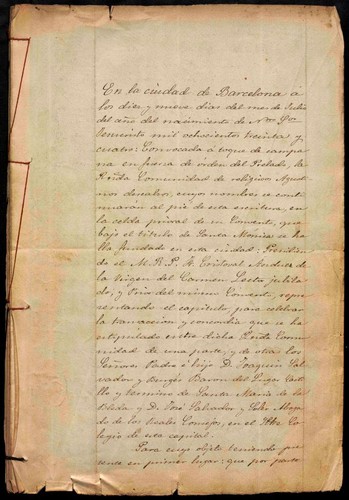 En la ciudad de Barcelona á
los diez y nueve dias del mes de Julio
del año del nacimiento de Ntro Sor
Jesucristo mil ochocientos treinta y
cuatro: Convocada á toque de campa
na en fuerza de órden del Prelado, la
Rnda Comunidad de religiosos Agusti
nos descalzos, cuyos nombres se conti
nuarán al pie de esta escritura, en
la celda prioral de su Convento, que
bajo el título de Santa Mónica se ha
lla fundado en esta ciudad: Presidien
do el M. R. P. Fr. Cristoval Andrés de
la Virgen del Carmen Lector jubila
do, y Prior del mismo Convento, repre
sentando el capítulo, para celebrar
la transaccion y concordia que se ha
estipulado entre dicha Rnda Comu
nidad de una parte; y de otra los
Señores Padre é hijo D. Joaquin Sal
vador y Burgés Baron del Lugar Casti
llo y termino de Santa María de la
D. José Salvador y
do de los Reales Consejos, en el Iltre Co
legio de esta capital.
Para cuyo objeto teniendo pre
sente en primer lugar: que por parte